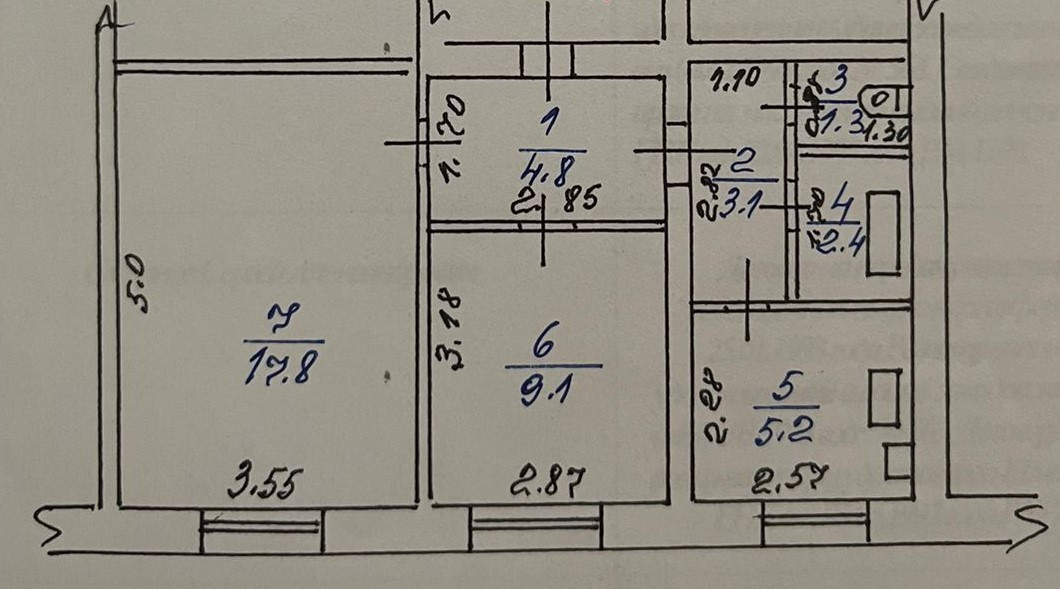 1.70
1
4.8
2.85
1.10
2
3.1
2.82
3
1.3
1.30
4
2.4
5.0
7
17.8
3.55
3.18
6
9.1
2.87
2.28
5
5.2
2.57